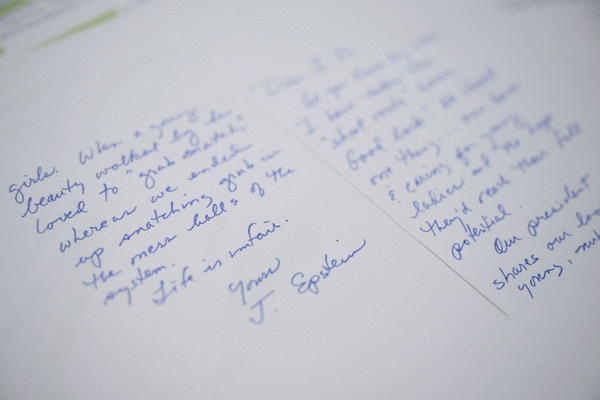 girls. When a young
beauty walked by he
loved to "grab snatch,"
whereas we ended
up snatching grub in
the mess halls of the
system.
Life is unfair.
Yours
J. Epstein
Dear L.
As you know by now
I have taken the
"short route" home.
Good luck! We shared
one thing... our love
& caring for young
ladies and the hope
they'd reach their full
potential.
Our president
shares our
young,